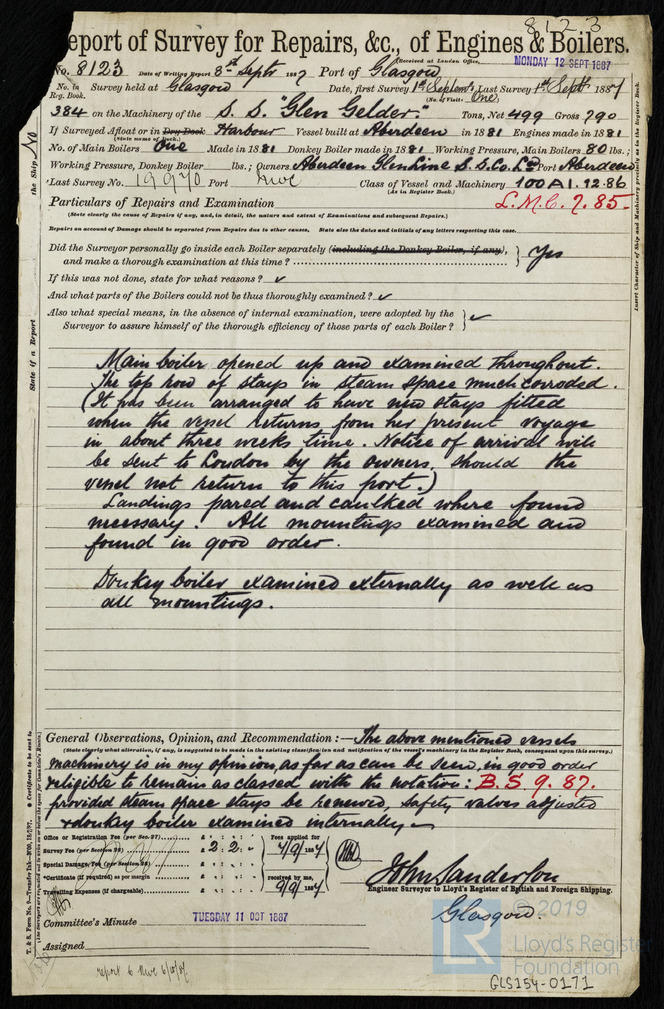 8123
eport of Survey for Repairs, &c., of Engines & Boilers.
Received at London Office, MONDAY 12 SEPT 1887
No. 8123 Date of Writing Report 8th Septr 1887 Port of Glasgow
No. in Reg. Book. Survey held at Glasgow Date, first Survey 1st Septem. Last Survey 1st Septr 1887
(No. of Visits One)
384 on the Machinery of the S. S. "Glen Gelder." Tons, Net 499 Gross 790
If Surveyed Afloat or in Dry Dock Harbour Vessel built at Aberdeen in 1881 Engines made in 1881
(State name of Dock.)
No. of Main Boilers One Made in 1881 Donkey Boiler made in 1881 Working Pressure, Main Boilers 80 lbs.;
Working Pressure, Donkey Boiler lbs.; Owners Aberdeen Glen Line S.S.Co. Ld Port Aberdeen
Last Survey No. 19970 Port Nwc Class of Vessel and Machinery 100A1.12.86
(As in Register Book.)
Particulars of Repairs and Examination L.M.C. 7.85.
(State clearly the cause of Repairs if any, and, in detail, the nature and extent of Examinations and subsequent Repairs.)
Repairs on account of Damage should be separated from Repairs due to other causes, State also the dates and initials of any letters respecting this case.
Did the Surveyor personally go inside each Boiler separately (including the Donkey Boiler, if any), and make a thorough examination at this time? Yes
If this was not done, state for what reasons? ✓
And what parts of the Boilers could not be thus thoroughly examined? ✓
Also what special means, in the absence of internal examination, were adopted by the Surveyor to assure himself of the thorough efficiency of those parts of each Boiler? ✓
Main boiler opened up and examined throughout.
The top row of stays in steam space much corroded.
(It has been arranged to have new stays fitted
when the vessel returns from her present voyage
in about three weeks time. Notice of arrival will
be sent to London by the owners, should the
vessel not return to this port.)
Landings pared and caulked where found
necessary. All mountings examined and
found in good order.
Donkey boiler examined externally as well as
all mountings.
General Observations, Opinion, and Recommendation:— The above mentioned vessels
(State clearly what alteration, if any, is suggested to be made in the existing classification and notification of the vessel's machinery in the Register Book, consequent upon this survey.)
machinery is in my opinion, as far as can be seen, in good order
& eligible to remain as classed with the notation: B.S 9.87.
provided steam space stays be renewed, safety valves adjusted
& donkey boiler examined internally
Office or Registration Fee (per Sec. 27)
Survey Fee (per Section 28) £ 2 : 2 : Fees applied for 7/9/1887
Special Damage Fee
Certificate (if required) as per margin received by me, 9/9/1887
Travelling Expenses (if chargeable)
John Sanderson
Engineer Surveyor to Lloyd's Register of British and Foreign Shipping.
Glasgow.
Committee's Minute TUESDAY 11 OCT 1887
Assigned
© 2019
LR Lloyd's Register Foundation
GLS154-0171